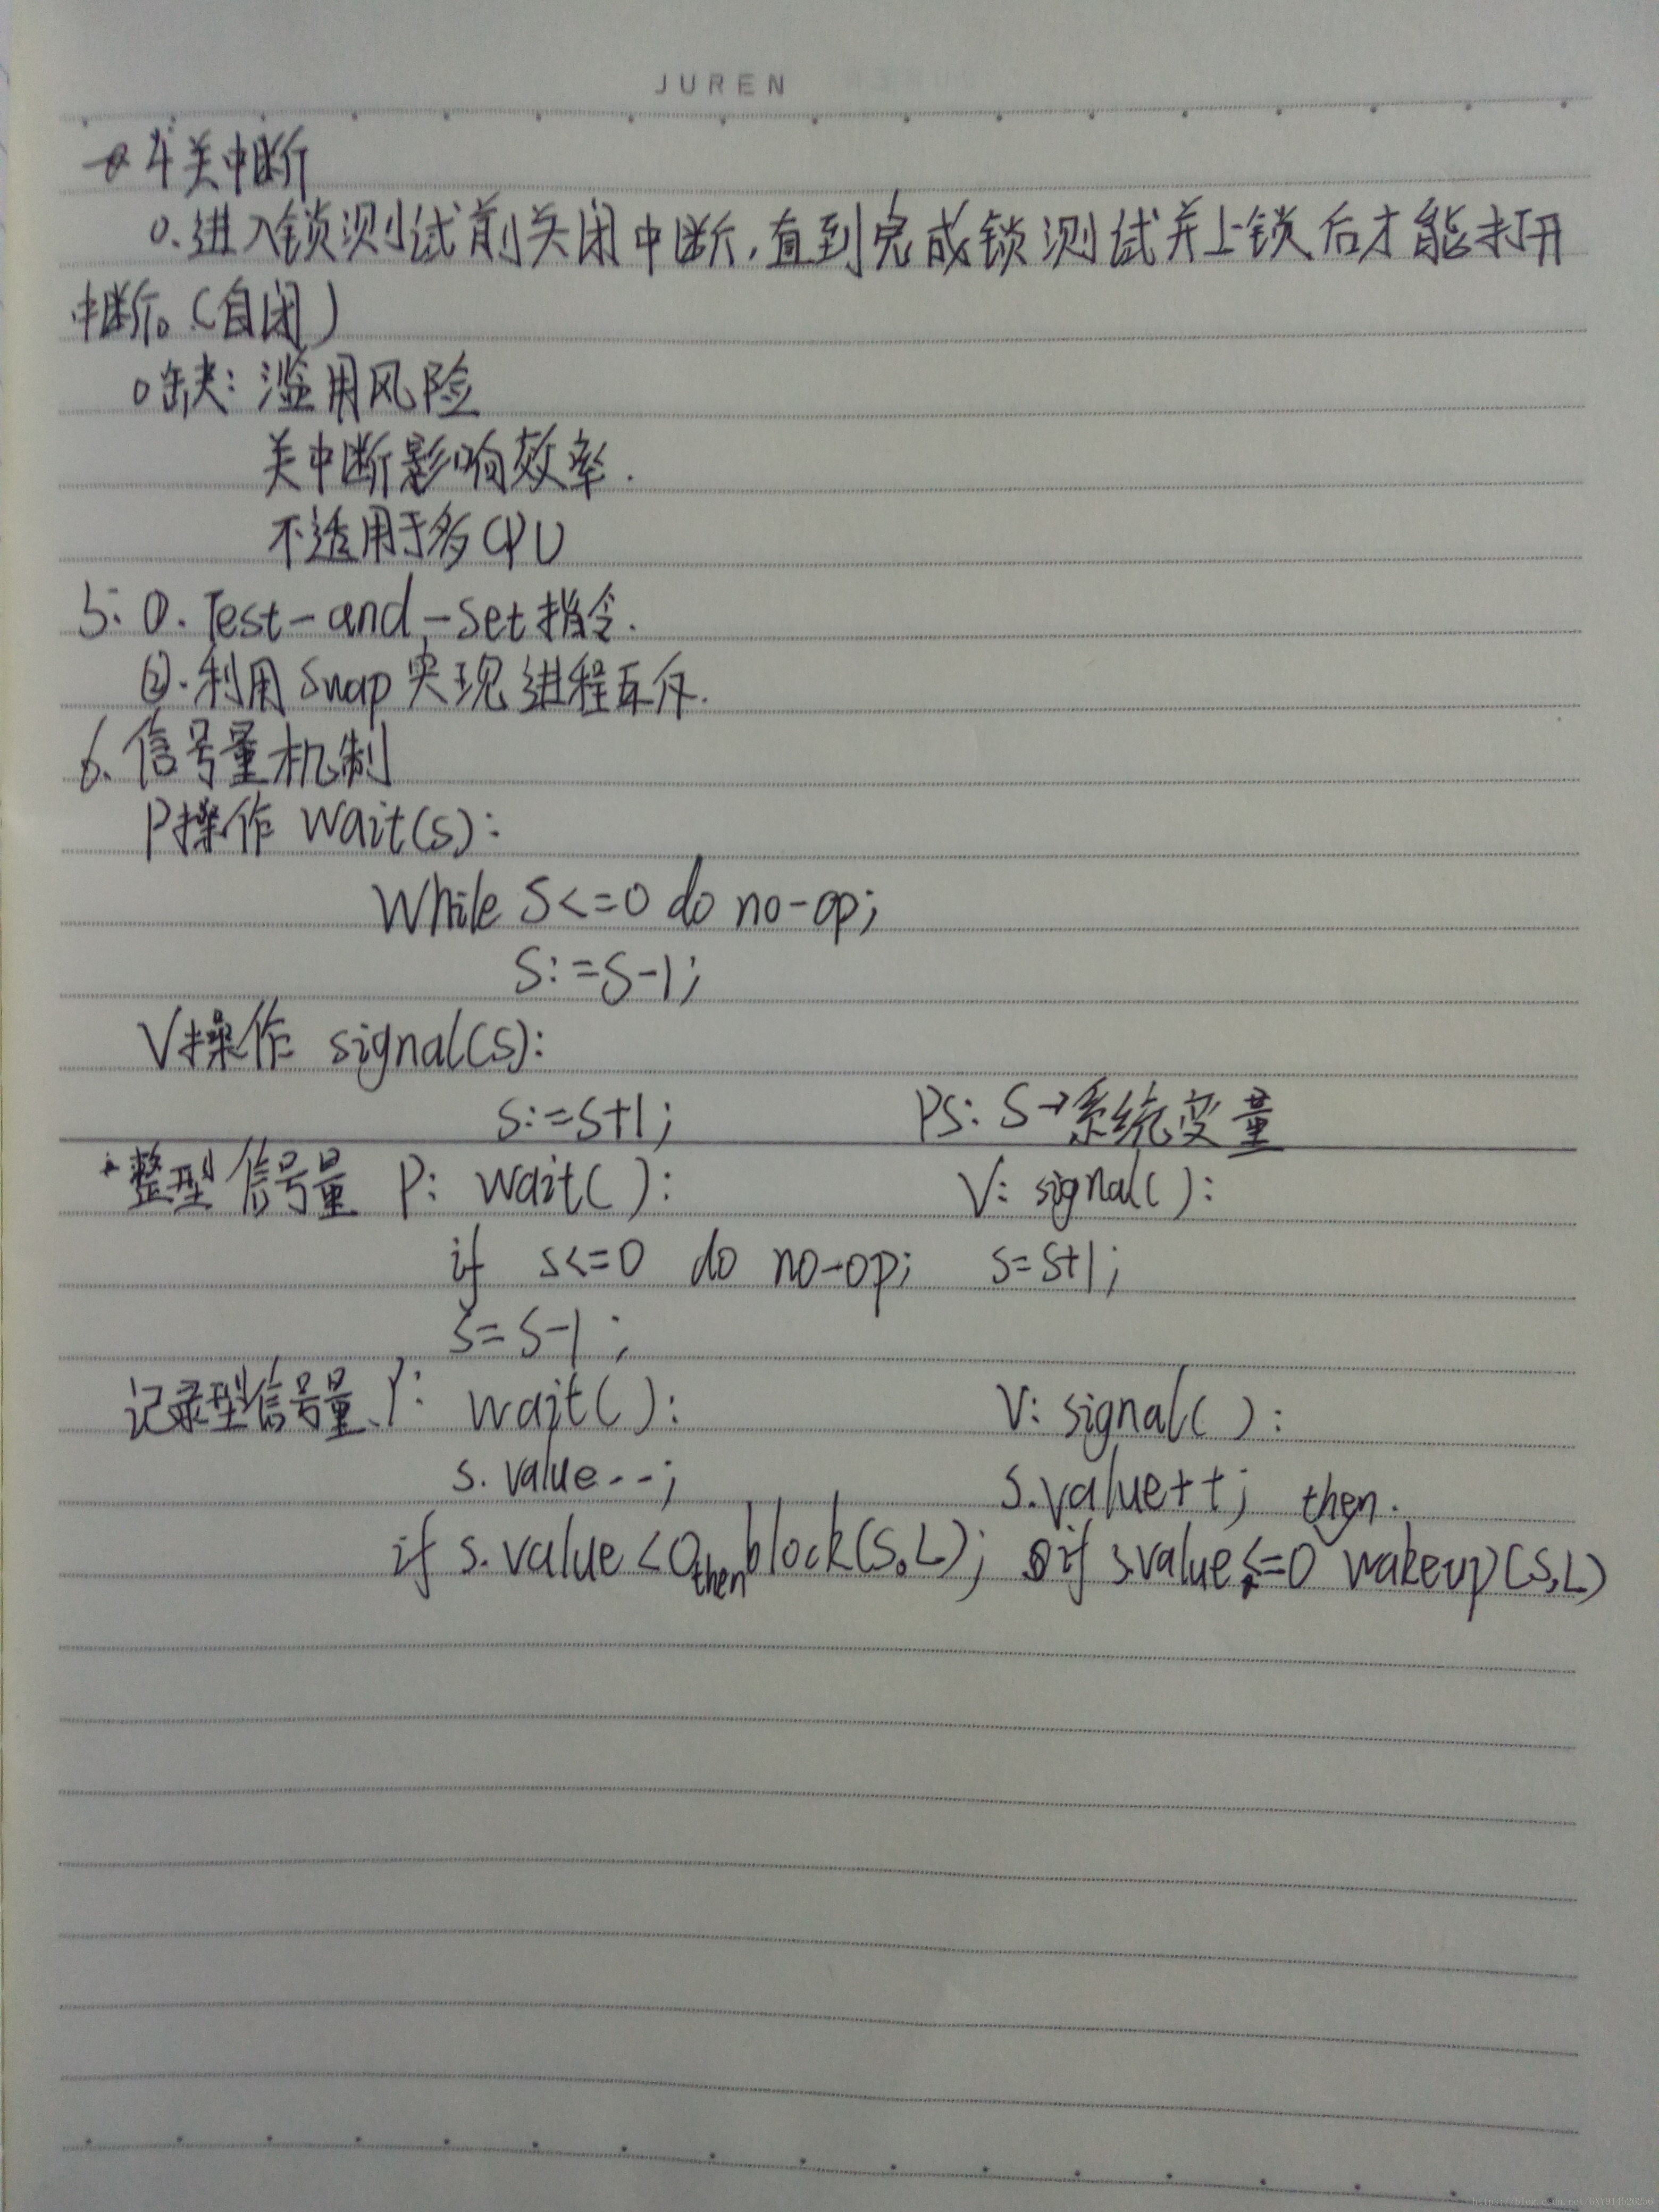 JUREN
4关中断
0.进入锁测试前关闭中断,直到完成锁测试并上锁后才能打开
中断。(自闭)
0缺:滥用风险
关中断影响效率.
不适用于多CPU
5: ①. Test-and-set指令.
②.利用Swap实现进程互斥.
6、信号量机制
P操作 wait(s):
While S<=0 do no-op;
S:=S-1;
V操作 signal(s):
S:=S+1; PS: S→系统变量
·整型信号量 P: wait( ): V: signal( ):
if s<=0 do no-op; s=s+1;
s=s-1;
记录型信号量、P: wait( ): V: signal( ):
s.value--; s.value++; then.
if s.value<0 then block(S,L); if s.value<=0 wakeup(S,L)